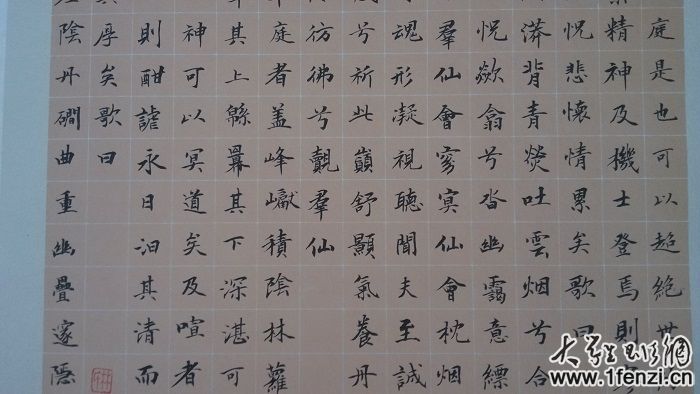 庭是也可以超絕世
精神及機士登焉則
怳悲懷情累矣歌曰
漭背青熒吐雲烟兮合
怳欻翕兮沓幽靄意縹
羣仙會窅冥仙會枕烟
魂形凝視聽聞夫至誠
兮祈此巔舒顥氣養丹
彷彿兮覿羣仙
庭者蓋峰巘積陰林蘿
其上緜羃其下深湛可
神可以冥道矣及喧者
則酣謔永日汩其清而
厚矣歌曰
陰丹磵曲重幽疊邃隱
www.1fenzi.cn